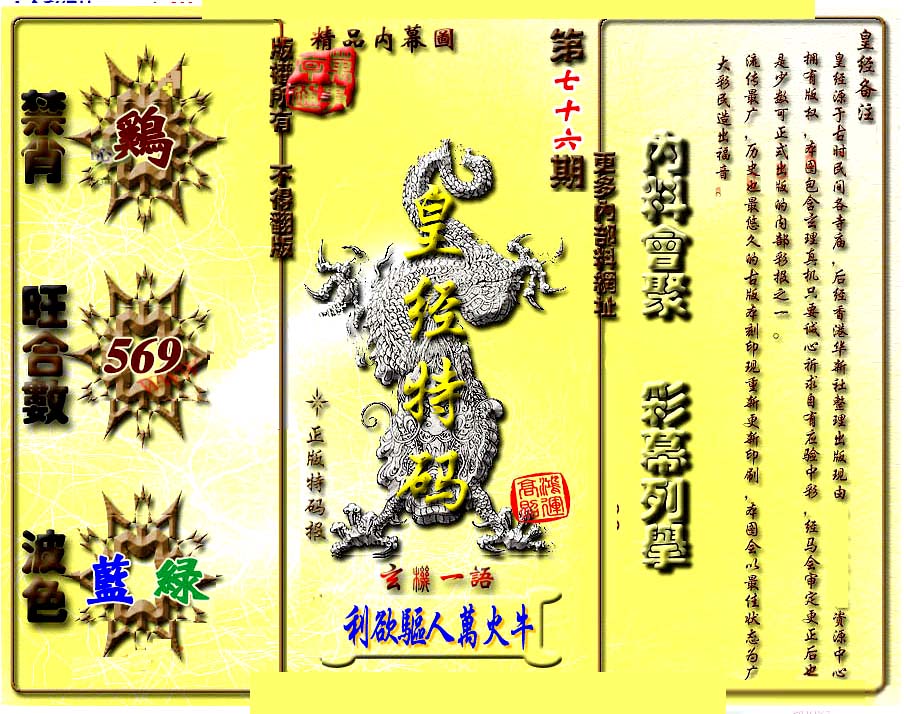 精品内幕圖
第七十六期
版權所有 不得翻版
禁肖
鷄
旺合數
569
波色
藍 綠
皇经特码
正版特码报
鴻運高照
玄機一語
利欲驅人萬火牛
更多内部料網址
内料會聚
彩幕列舉
皇经备注
皇经源于古时民间各寺庙,后经香港华新社整理出版现由 资源中心
拥有版权,本图包含玄理真机只要诚心祈求自有应验中彩,经马会审定更正后也
是少数可正式出版的内部彩报之一。
流传最广,历史也最悠久的古版本刻印现重新更新印刷,本图会以最佳状态为广
大彩民造出福音